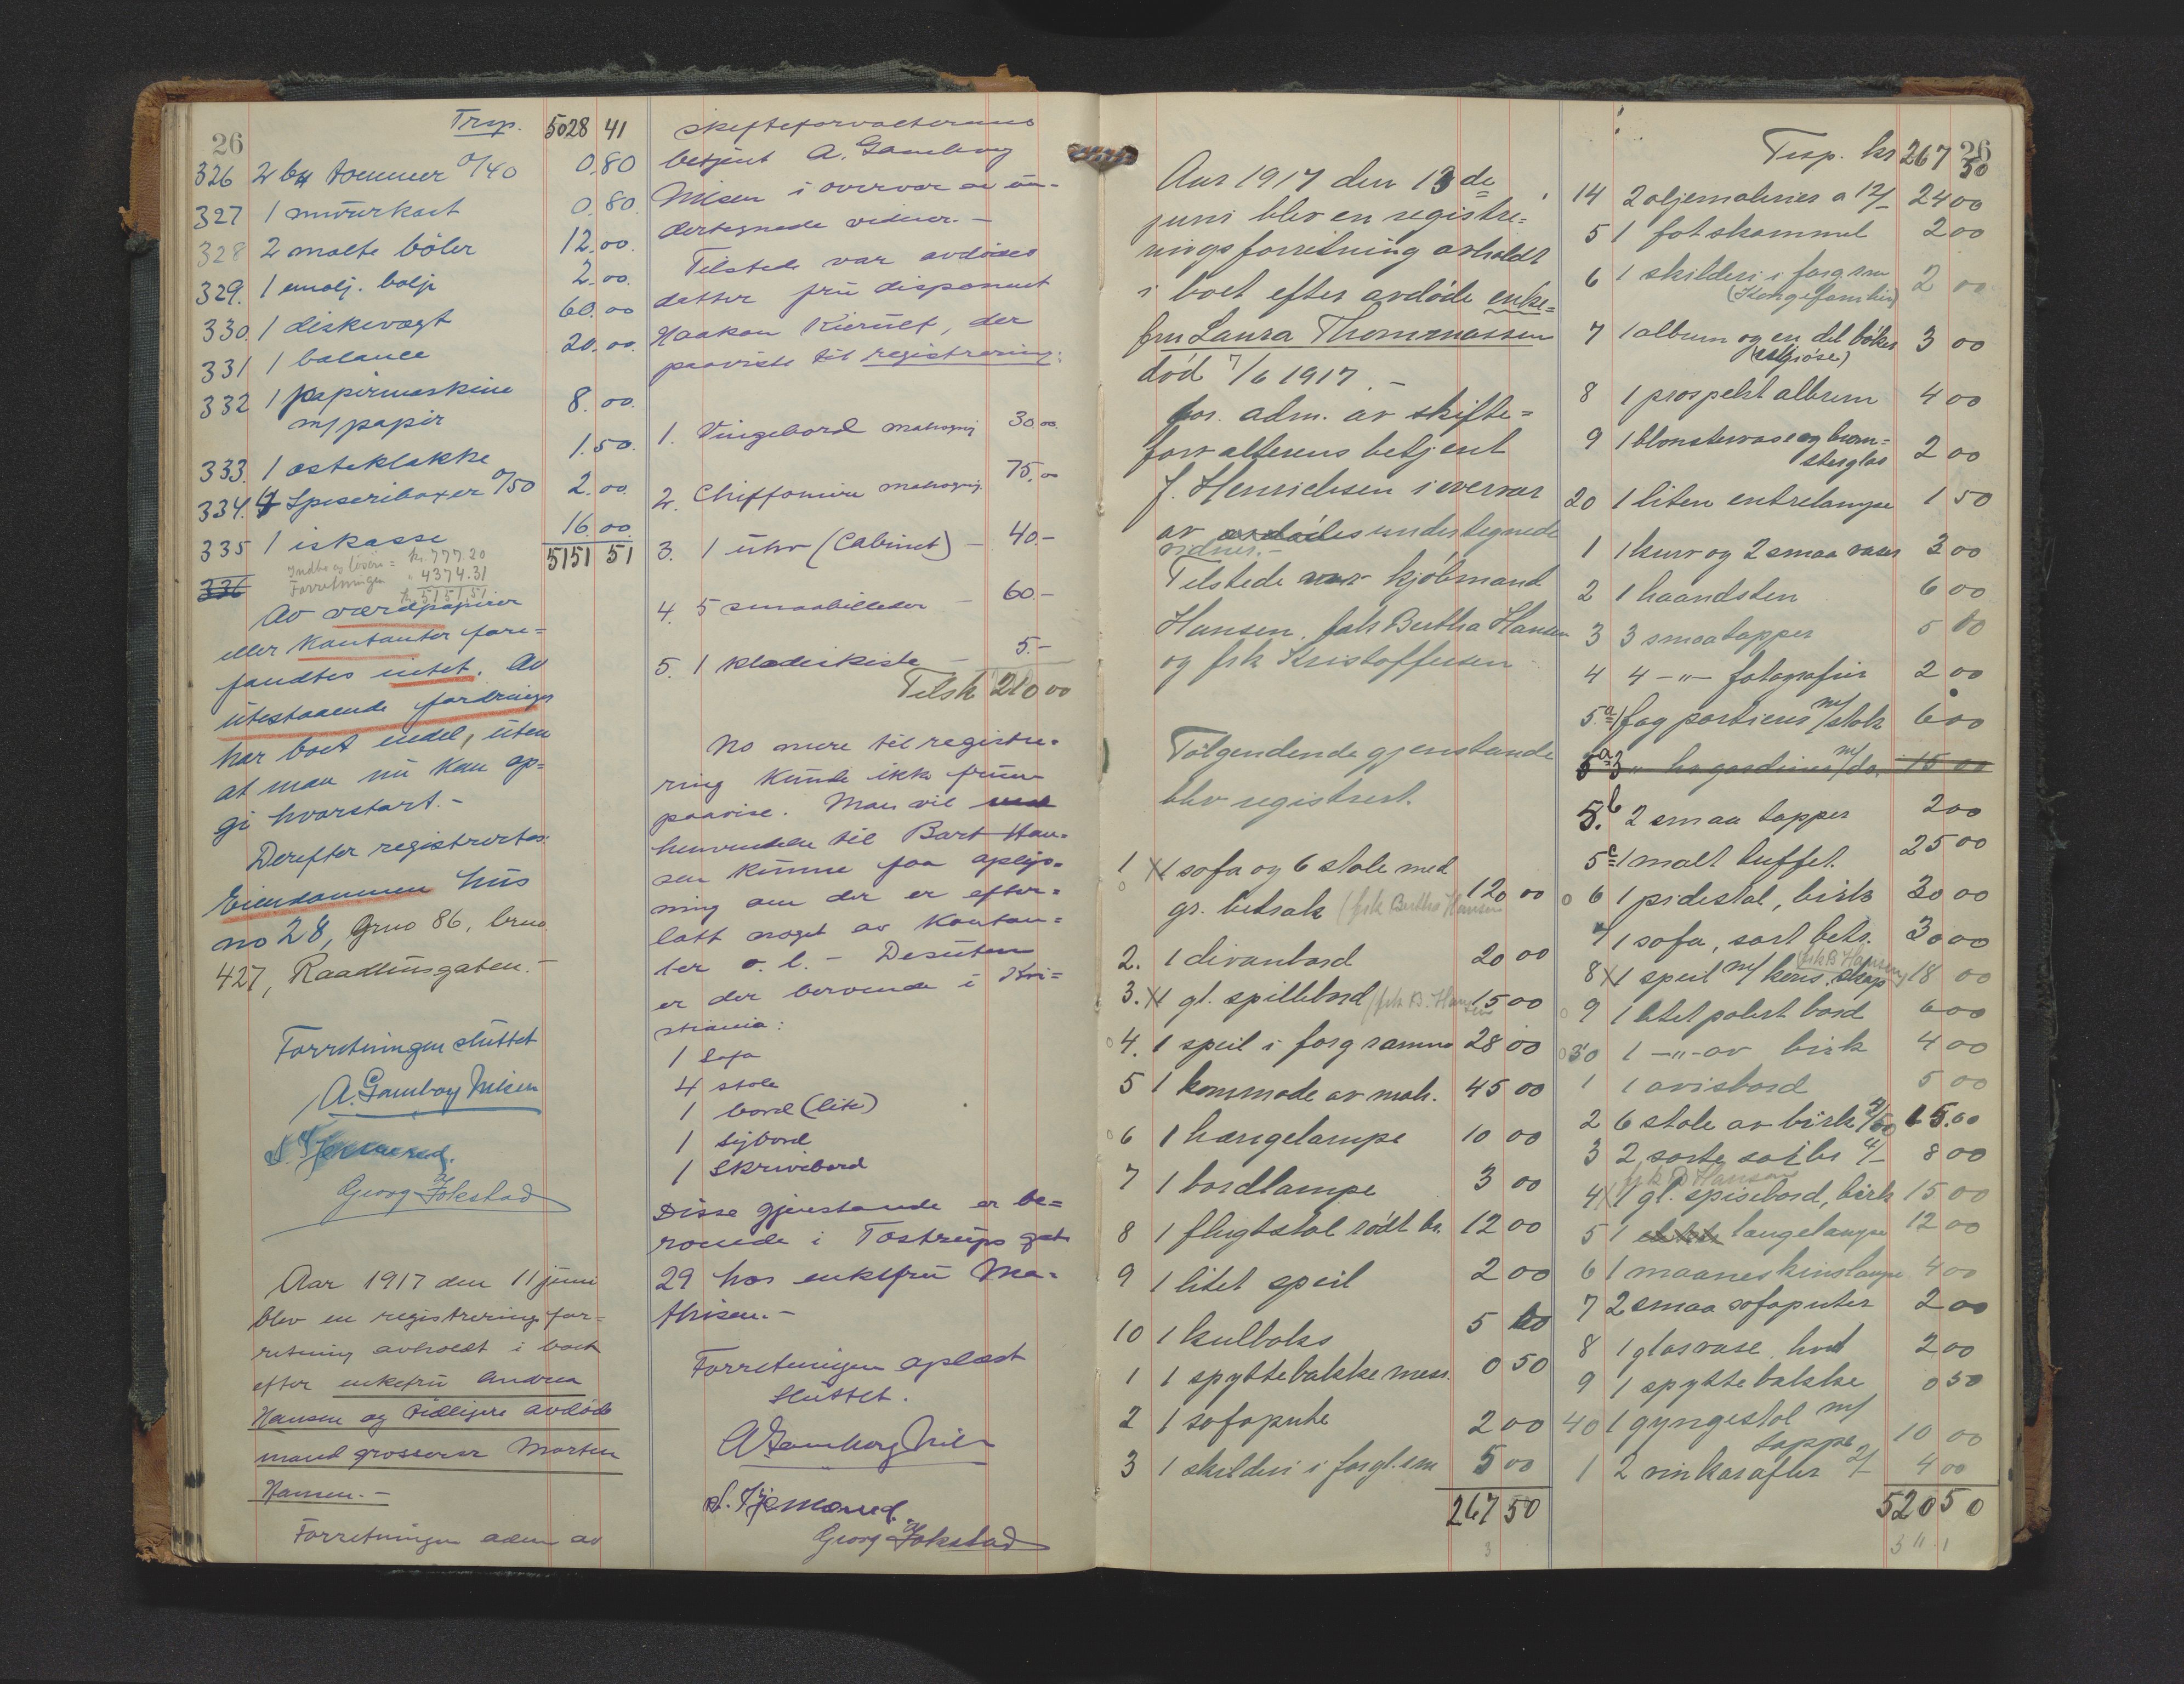 26
Trsp. 5028 41
326 2 bg tommer 0/40 0.80
327 1 murerkost 0.80
328 2 malte böler 12.00.
329. 1 emalj. balje 2.00.
330. 1 diskevægt 60.00
331 1 balance 20.00.
332 1 papirmaskine
m/papir 8.00.
333. 1 osteklokke 1.50.
334. 4 Speseriboxer 0/50 2.00.
335 1 iskasse 16.00.
5151 51
Indbo og lösöre = kr. 777.20
Forretningen " 4374.31
kr. 5151.51
336
Av værdpapirer
eller Kontanter fore=
fandtes intet. Av
utestaaende fordringer
har boet endel, uten
at man nu kan op=
gi hvorstort.-
Derefter registrertes
Eiendommen hus
no 28, Grno 86, brno
427, Raadhusgaten.-
Forretningen sluttet
A. Gamborg Nilsen
Georg Fokstad
Aar 1917 den 11 juni
blev en registrerings for=
retning avholdt i boet
efter enkefru Andrea
Hansen og tidligere avdöde
mand grosserer Morten
Hansen.-
Forretningen adm av
skifteforvalterens
betjent A. Gamborg
Nilsen i overvær av un-
dertegnede vidner.-
Tilstede var avdödes
datter fru disponent
Haakon Kierulf, der
paaviste til registrering:
1. Vingebord mahogny 30.00.
2. Chiffoniere mahogny. 75.00
3. 1 uhr (Cabinet) - 40.-
4. 5 smaabilleder - 60.-
5. 1 klædeskiste - 5.-
Tils kr 210 00
No mere til registre-
ring kunde ikke fruen
paavise. Man vil ved
henvendelse til Bart Han-
sen kunne faa oplys-
ning om der er efter=
latt noget av Kontan=
ter o. l. - Desuten
er der beroende i Kri=
stiania:
1 Sofa
4 stole
1 bord (lite)
1 Sybord
1 Skrivebord
Disse gjenstande er be=
roende i Tostrups gate
29 hos enkefru Ma-
thisen.-
Forretningen oplæst
Sluttet.
A Gamborg Nils
Georg Fokstad
26
Aar 1917 den 13de
juni blev en registre=
ringsforretning avholdt
i boet efter avdöde enke=
fru Laura Thommassen
död 7/6 1917.-
For. adm. av skifte=
forvalterens betjent
J. Henrichsen i overvær
av avdödes undertegnede
vidner.-
Tilstede var kjöbmand
Hansen, frk Bertha Hansen
og frk Kristoffersen
Følgendende gjenstande
blev registrert.
1 X 1 sofa og 6 stole med
gr. betræk (frk Bertha Hansen 120 00
2. 1 divanbord 20 00
3. X 1 gl. spillebord (frk B. Hansen 15 00
4. 1 speil i forg ramme 28 00
5 1 kommode av mah. 45 00
6 1 hængelampe 10 00
7 1 bordlampe 3 00
8 1 flugtstol rödt br. 12 00
9 1 litet speil 2 00
10 1 kulboks 5 00
1 1 spyttebakke mess. 0 50
2 1 sofapute 2 00
3 1 skilderi i forgl. rm 5 00
267 50
Trsp. kr 267 50
14 2 oljemalerier a 12/- 24 00
5 1 fotskammel 2 00
6 1 skilderi i forg rm
(Kongefamilien) 2 00
7 1 album og en del böker
(religiöse) 3 00
8 1 prospekt album 4 00
9 1 blomstervase og blom=
sterglas 2 00
20 1 liten entrelampe 1 50
1 1 kurv og 2 smaa vaser 3 00
2 1 haandsten 6 00
3 3 smaa tepper 5 00
4 4 -"- fotografier 2 00
5.a 1 fag portierer m/stok 6 00
5a 3 " hv gardiner m/do. 15 00
5.b 2 smaa tepper 2 00
5c 1 malt buffet. 25 00
6 1 pidestal, birk 30 00
7 1 sofa, sort betr. 30 00
8 X 1 speil m/ kons. skap (frk B Hansen) 18 00
9 1 litet polert bord 6 00
30 1 -"- av birk 4 00
1 1 avisbord 5 00
2 6 stole av birk 2/50 15.00
3 2 sorte do 4/- 8 00
frk B Hansen
4 X 1 gl. spisebord, birk 15 00
5 1 hængelampe 12 00
6 1 maaneskinslampe 4 00
7 2 smaa sofaputer 2 00
8 1 glasvase hvit 2 00
9 1 spyttebakke 0 50
40 1 gyngestol m/
teppe 10 00
1 2 vinkarafler 2/- 4 00
520 50